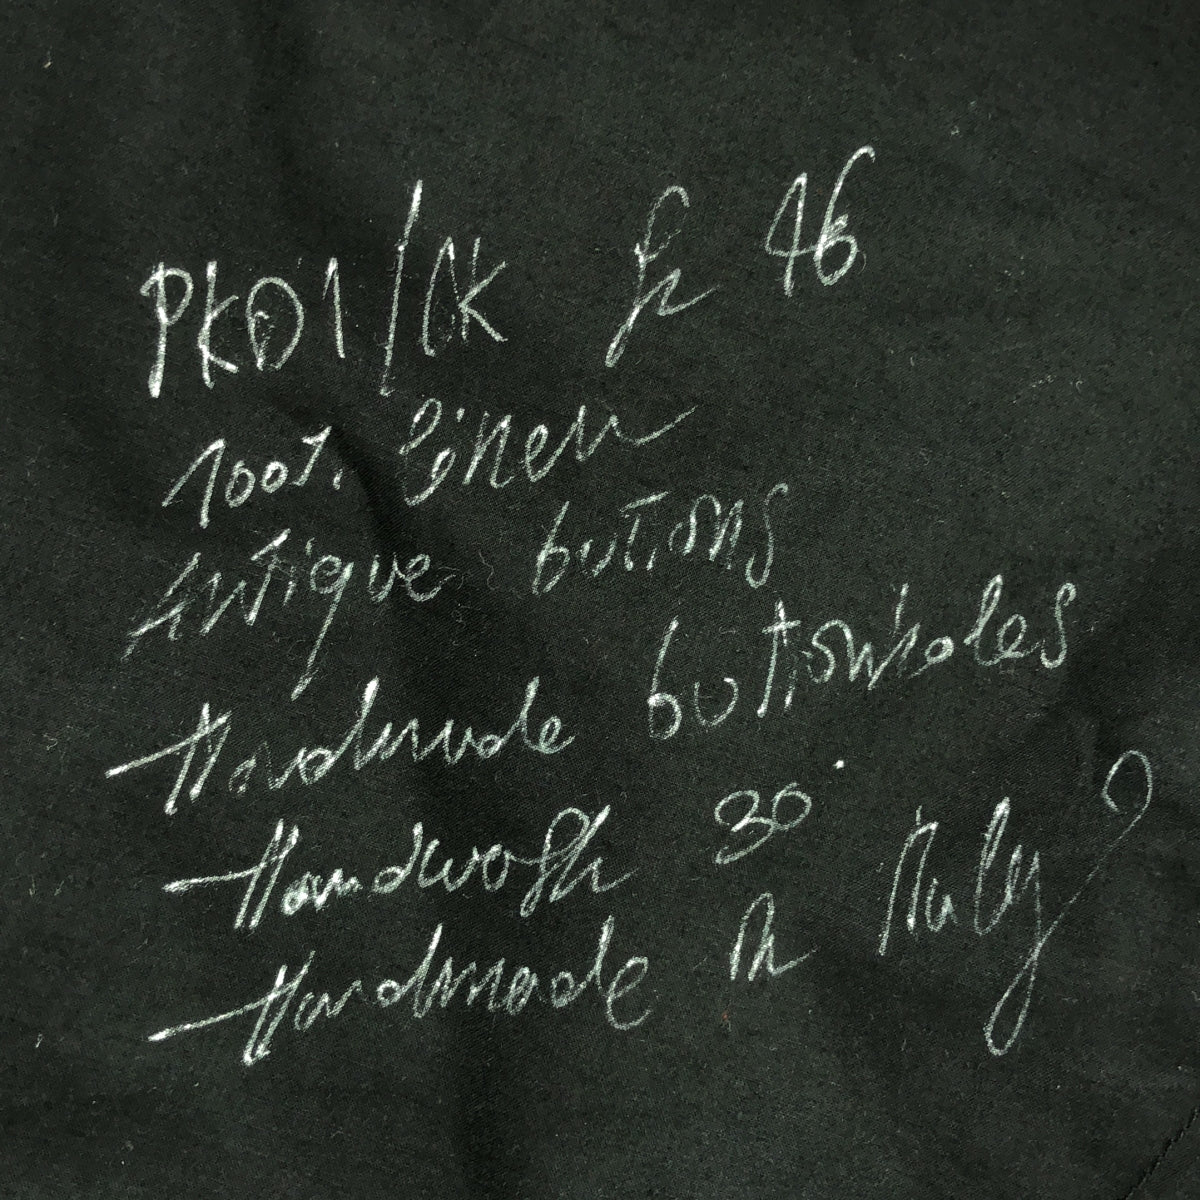 PK01/CK Sz 46
100% Linen
Antique buttons
Handmade buttonholes
Handwash 30°
Handmade in Italy